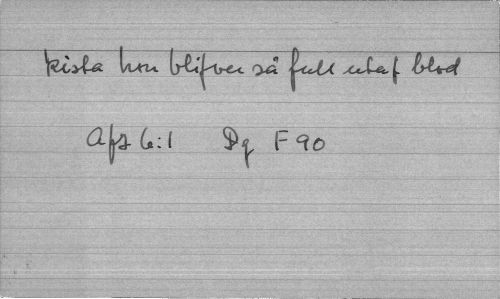 kista hon blifver så full utaf blod
Afz 6:1 Dq F 90